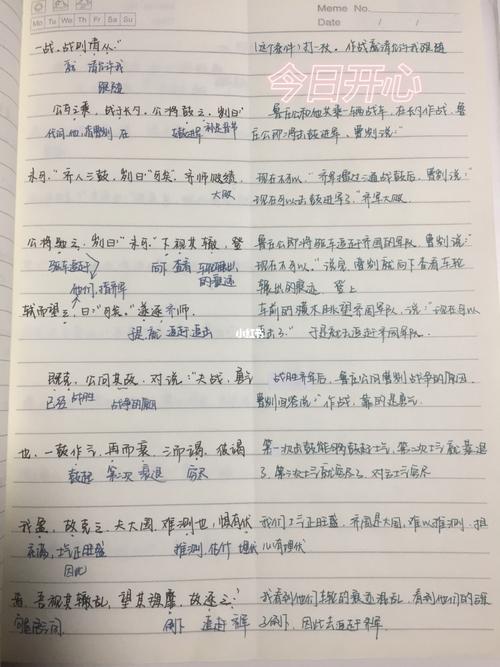 Meme No.
Mo Tu We Th Fr Sa Su
Date / /
一战。战则请从。"
(这个条件)打一仗。作战就请允许我跟随
就 请允许我
跟随
今日开心
公与之乘，战于长勺。公将鼓之，刿曰"
鲁庄公和他共乘一辆战车，在长勺作战，鲁
代词,他,指曹刿 在 击鼓进军 补足音节
庄公即将击鼓进军，曹刿说："
未可。"齐人三鼓，刿曰"可矣"。齐师败绩，
现在不可以。"齐军擂过三通战鼓后，曹刿说："
大败
现在可以击鼓进军了。"齐军大败。
公将驰之，刿曰："未可。"下视其辙，登
鲁庄公即将驱车追赶齐国的军队，曹刿说："
驱车追赶 向下 查看 车轮碾出的痕迹
现在不可以。"说完，曹刿就向下查看车轮
他们,指齐军
辗出的痕迹，登上
轼而望之，曰："可矣。"遂逐齐师。
车前的横木眺望齐国军队，说："现在可以
小红书
追击了。"于是就去追赶齐国军队。
于是,就 追赶,追击
既克，公问其故，对说："夫战，勇气
战胜齐军后，鲁庄公问曹刿战争的原因
已经 战胜 战争的原因
曹刿回答说："作战，靠的是勇气
也，一鼓作气，再而衰，三而竭，彼竭
第一次击鼓能够鼓起士气，第二次士气就衰退
鼓起 第二次 衰退 穷尽
了，第三次士气就穷尽了，对方士气穷尽
我盈，故克之，夫大国，难测也，惧有伏
我们士气正旺盛，齐国是大国，难以难测，担
充满,士气正旺盛 推测,估计 埋伏
心有埋伏
因此
焉，吾视其辙乱，望其旗靡，故逐之。"
我看到他们车轮的痕迹混乱，看到他们的旗
倒下 追赶 齐军
子倒下，因此去追赶齐军